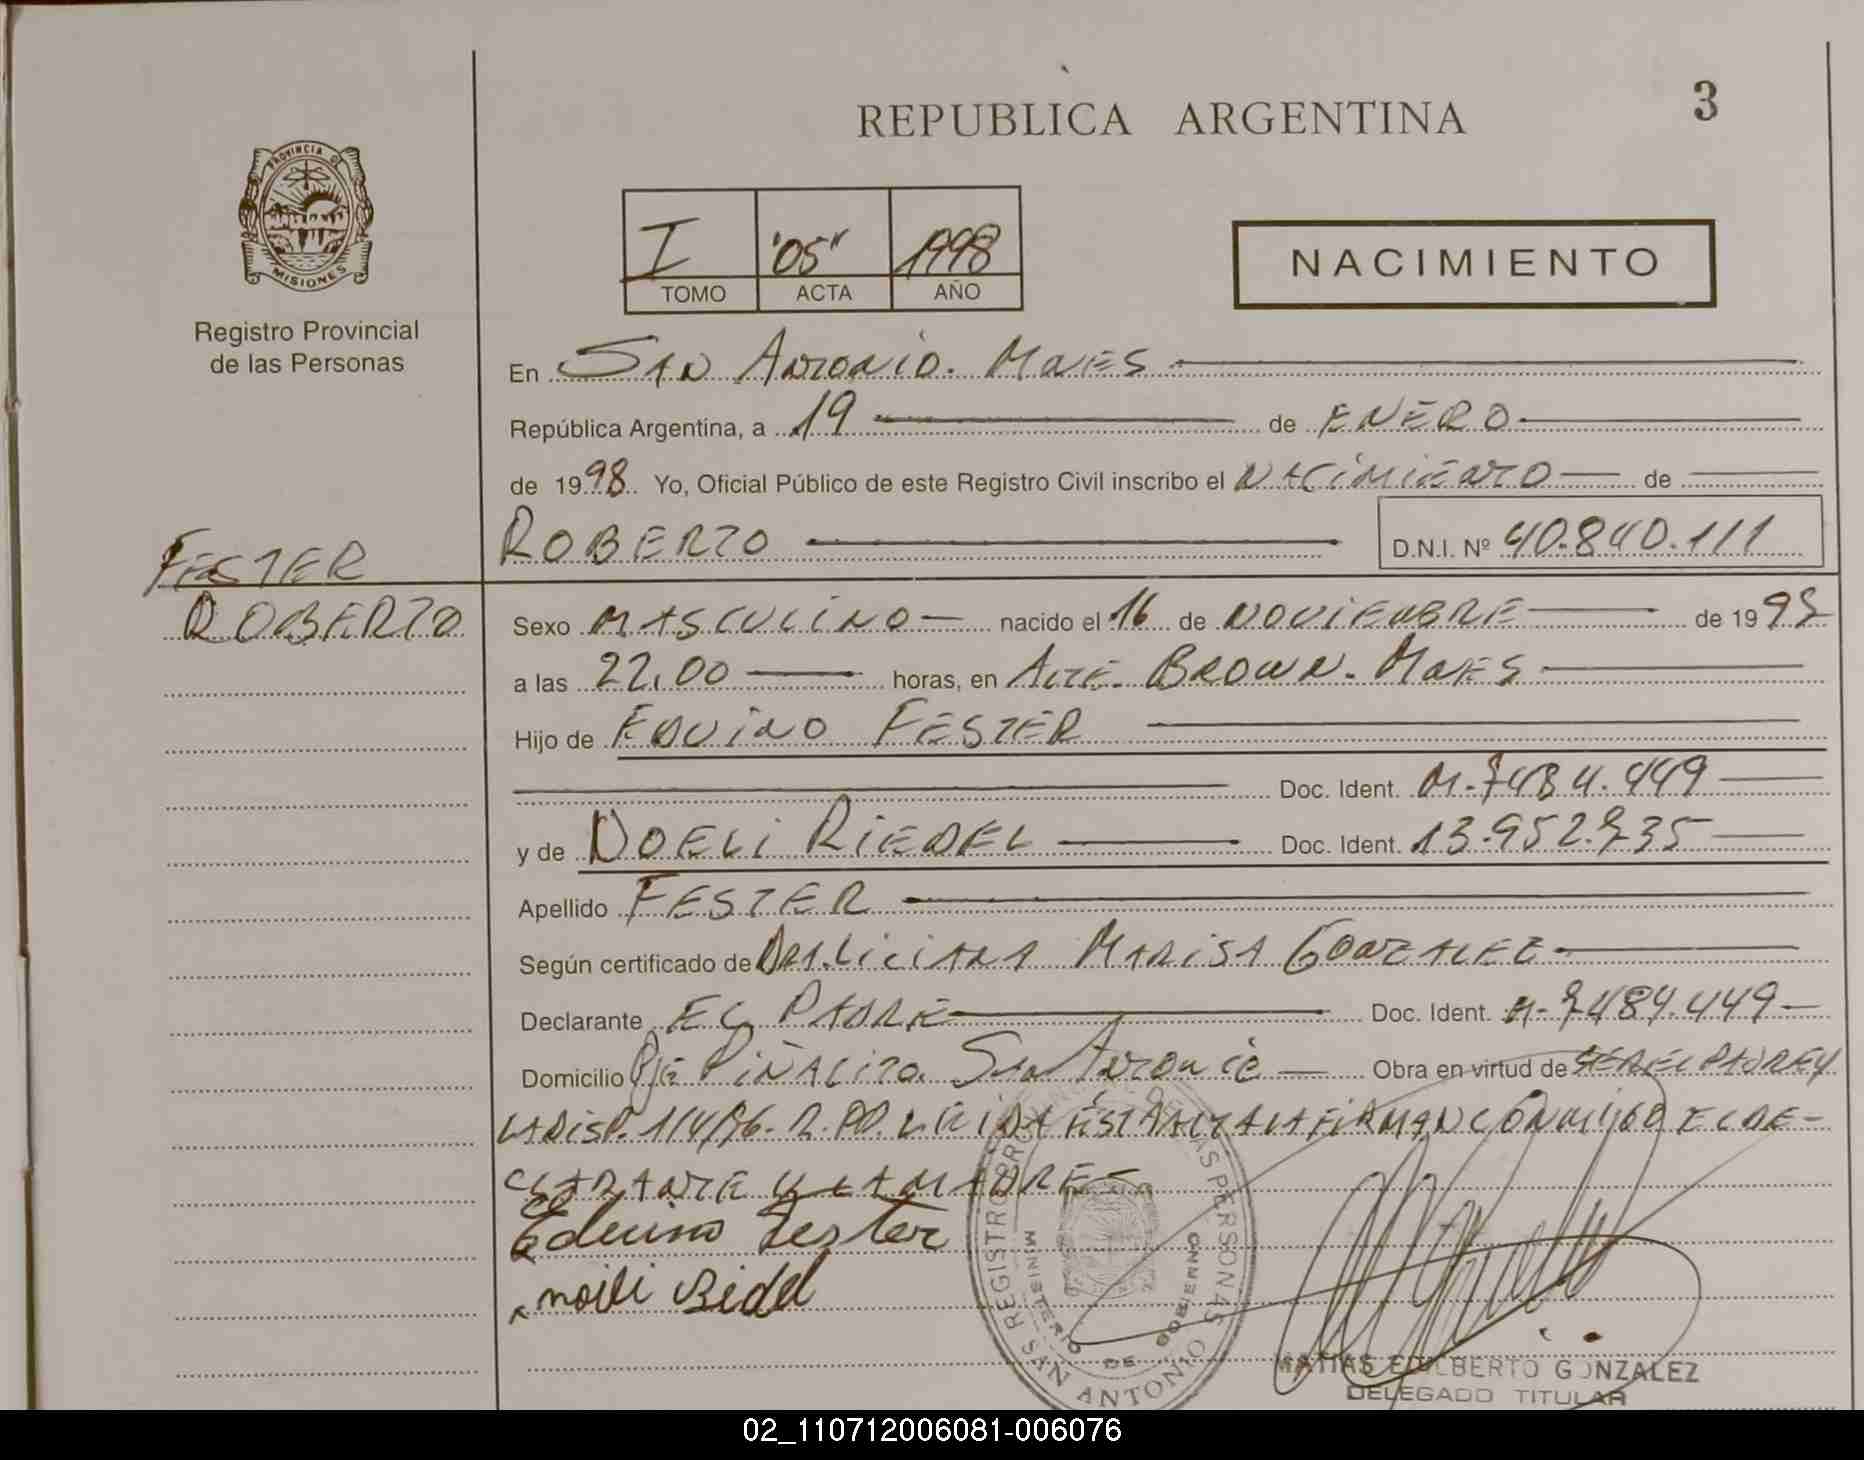 REPUBLICA ARGENTINA
3
PROVINCIA DE
MISIONES
Registro Provincial
de las Personas
I "05" 1998
TOMO ACTA AÑO
NACIMIENTO
En SAN ANTONIO. MNES
República Argentina, a 19 de ENERO
de 1998 Yo, Oficial Público de este Registro Civil inscribo el NACIMIENTO de
ROBERTO D.N.I. Nº 40.840.111
FESTER
ROBERTO
Sexo MASCULINO nacido el 16 de NOVIEMBRE de 1997
a las 22,00 horas, en ALTE. BROWN. MNES
Hijo de EDUINO FESTER
Doc. Ident. M-7484.449
y de NOELI RIEDEL Doc. Ident. 13.952.735
Apellido FESTER
Según certificado de DRA. LICIANA MARISA GONZALEZ
Declarante EL PADRE Doc. Ident. M-7484.449
Domicilio PJE PIÑALITO SAN ANTONIO Obra en virtud de SER EL PADRE Y
LA DISP. 114/96. R.PP. LEIDA ESTA ACTA LA FIRMAN CONMIGO EL DE-
CLARANTE Y LA MADRE-
Eduino Fester
noili Ridel
REGISTRO PERSONAS SAN ANTONIO
MINISTERIO DE GOBIERNO
MATIAS EDILBERTO GONZALEZ
DELEGADO TITULAR
02_110712006081-006076